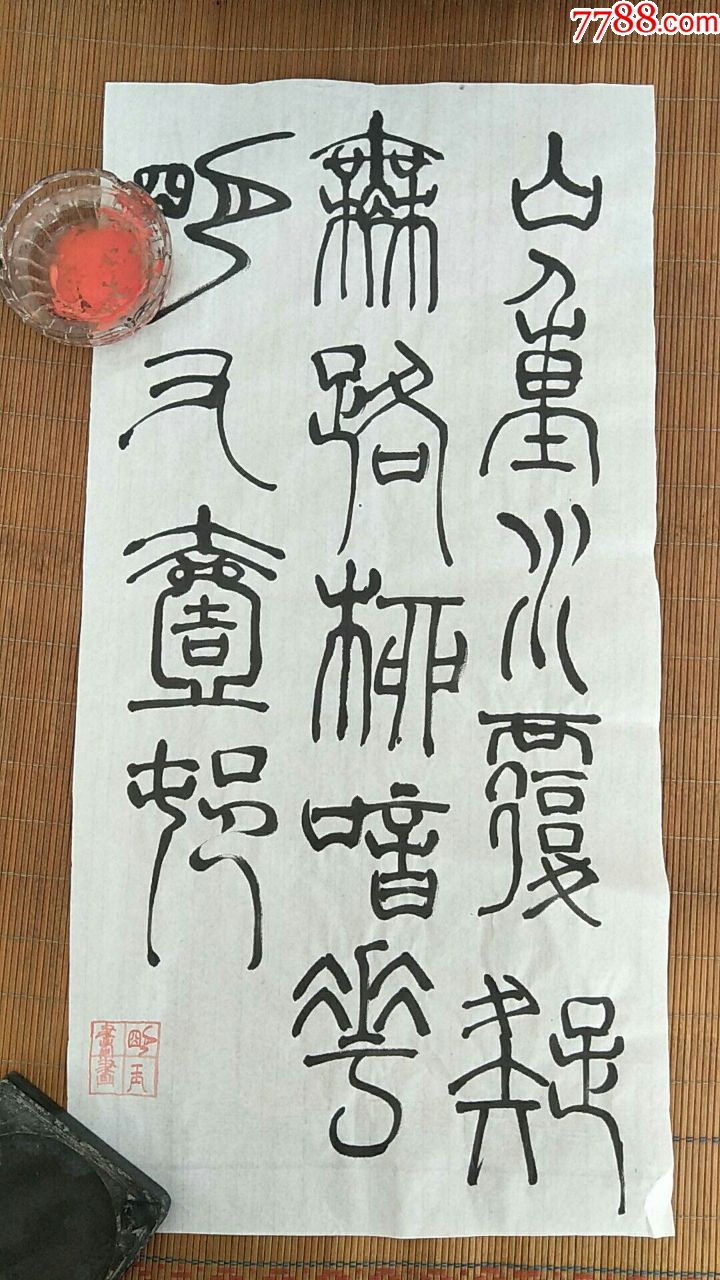 7788.com
山重水覆疑
無路柳暗花
明又壹邨
明
書畫